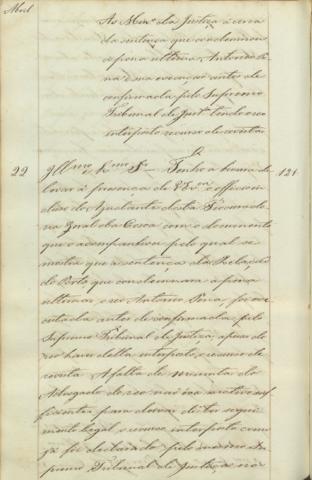 Abril
Ao Min.º da Justiça á cerca
da sentença que condemnou
a pena ultima, Antonio Pe-
na e sua execução antes de
confirmada pelo Supremo
Tribunal de Just.ª tendo o reo
interposto recurso de revista
22 Ill.mo e Ex.mo Sr. — Tenho a honra de 121
levar á presença de V. Ex.cia o officio in-
cluso do Ajudante desta Procurado-
ria Geral da Coroa com o documento
que o acompanhou pelo qual se
mostra que a sentença da Relação
do Porto que condemnara a pena
ultima o reo Antonio Pena, foi exe-
cutada antes de confirmada pelo
Supremo Tribunal de Justiça, apesar do
reo haver della interposto o recurso de
revista. A falta de minuta do
Advogado do reo não era motivo suf-
ficiente para deixar de ter segui-
mento legal o recurso interposto como
já foi declarado pelo mesmo Su-
premo Tribunal de Justiça no